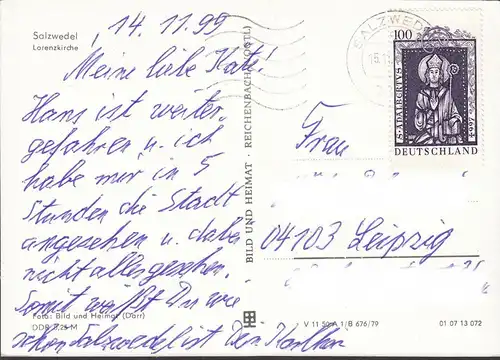 Salzwedel
Lorenzkirche
14.11.99
Meine liebe Kate!
Hans ist weiter-
gefahren u. ich
habe mir in 5
Stunden die Stadt
angesehen u. dabei
nicht alles gesehen.
Somit weißt Du wie
schön Salzwedel ist. Dein
Foto: Bild und Heimat (Darr)
DDR
BILD UND HEIMAT · REICHENBACH (VOGTL)
V 11 50 A 1/B 676/79
01 07 13 072
SALZWED
100
S·ADALBERTVS
997
DEUTSCHLAND
Frau
04103 Leipzig